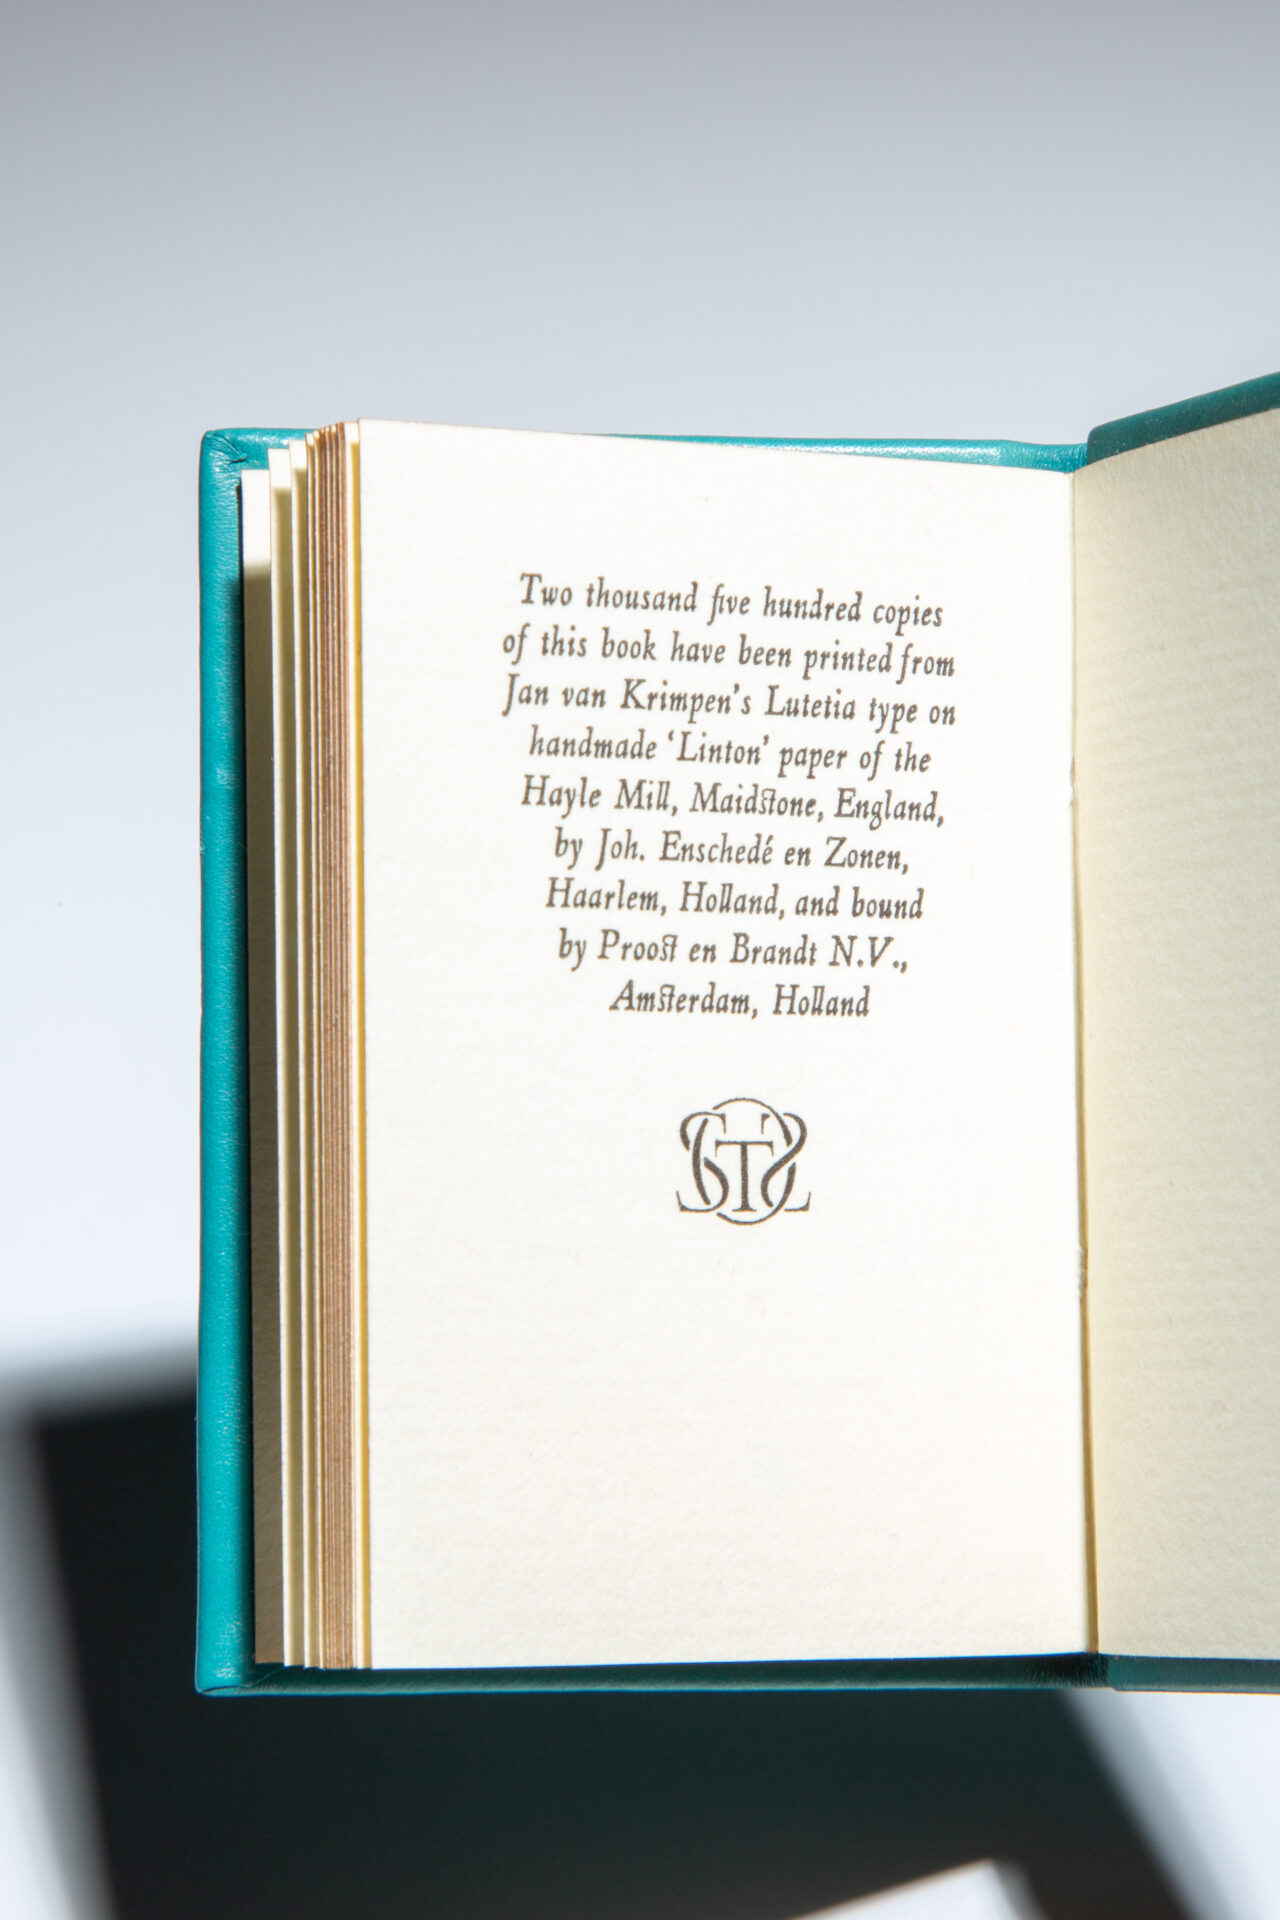 Two thousand five hundred copies
of this book have been printed from
Jan van Krimpen's Lutetia type on
handmade ‘Linton’ paper of the
Hayle Mill, Maidstone, England,
by Joh. Enschedé en Zonen,
Haarlem, Holland, and bound
by Proost en Brandt N.V.,
Amsterdam, Holland